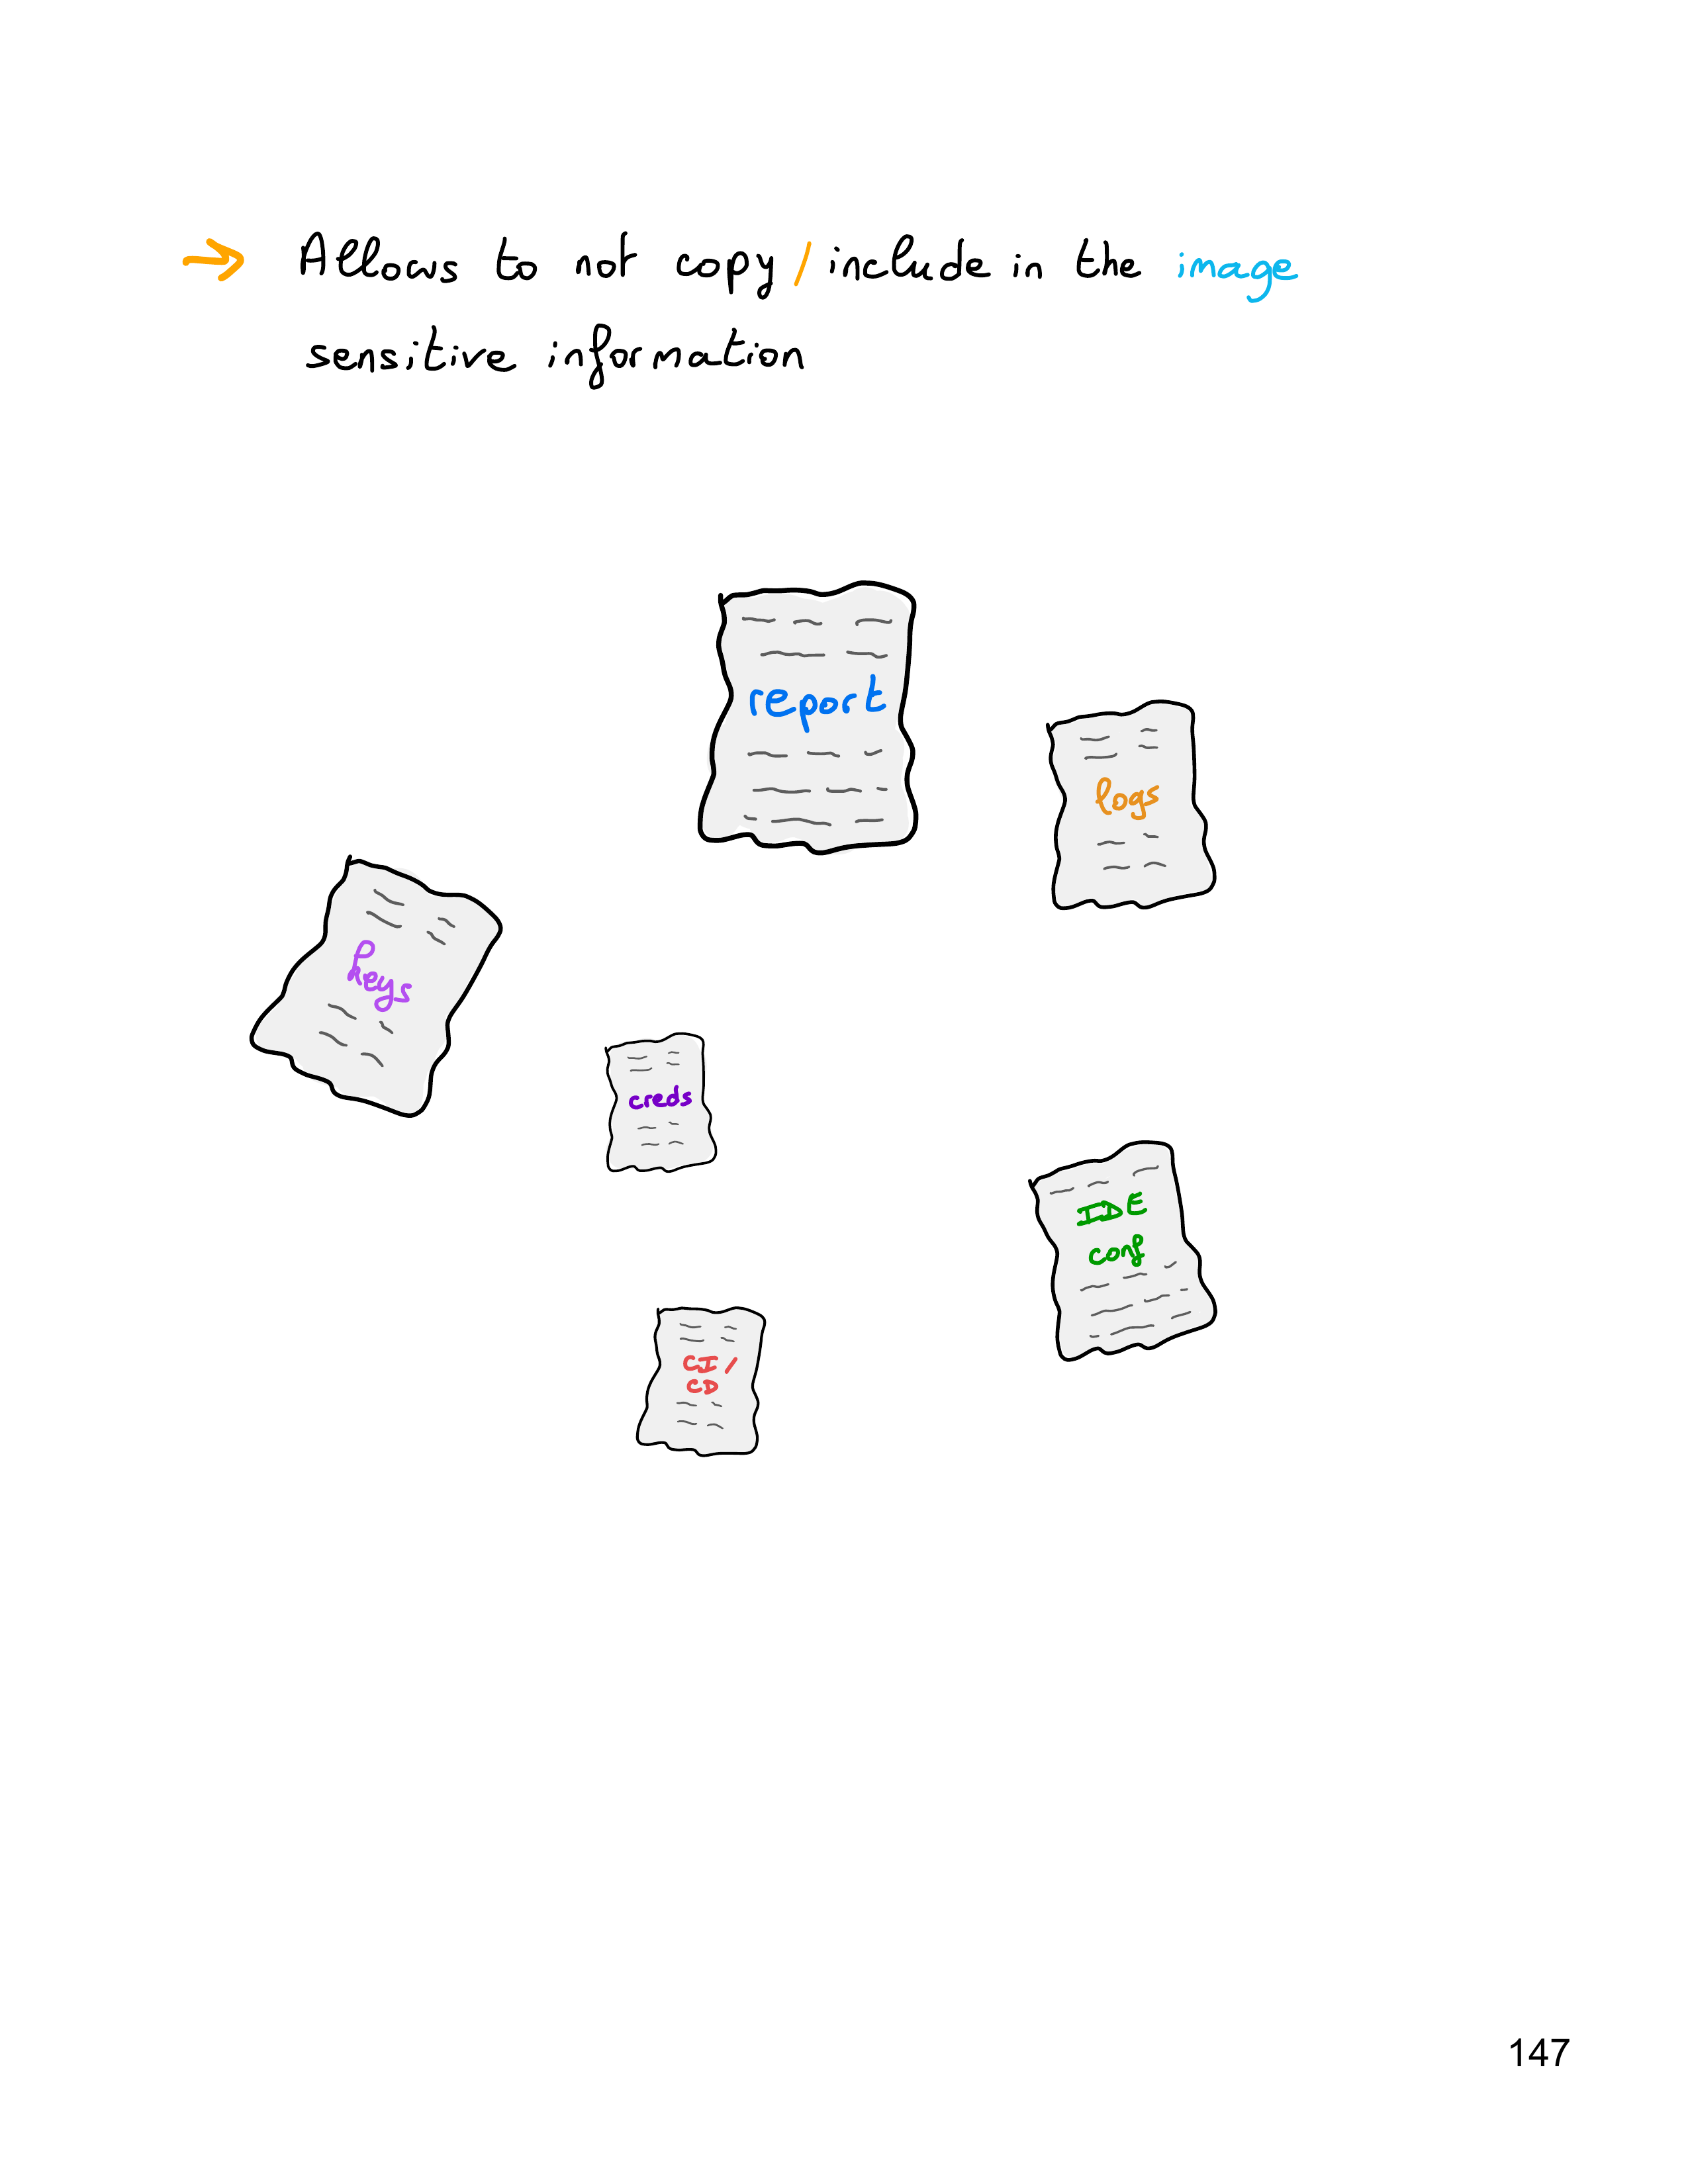 → Allows to not copy/include in the image
sensitive information
report
logs
keys
creds
IDE
conf
CI/
CD
147